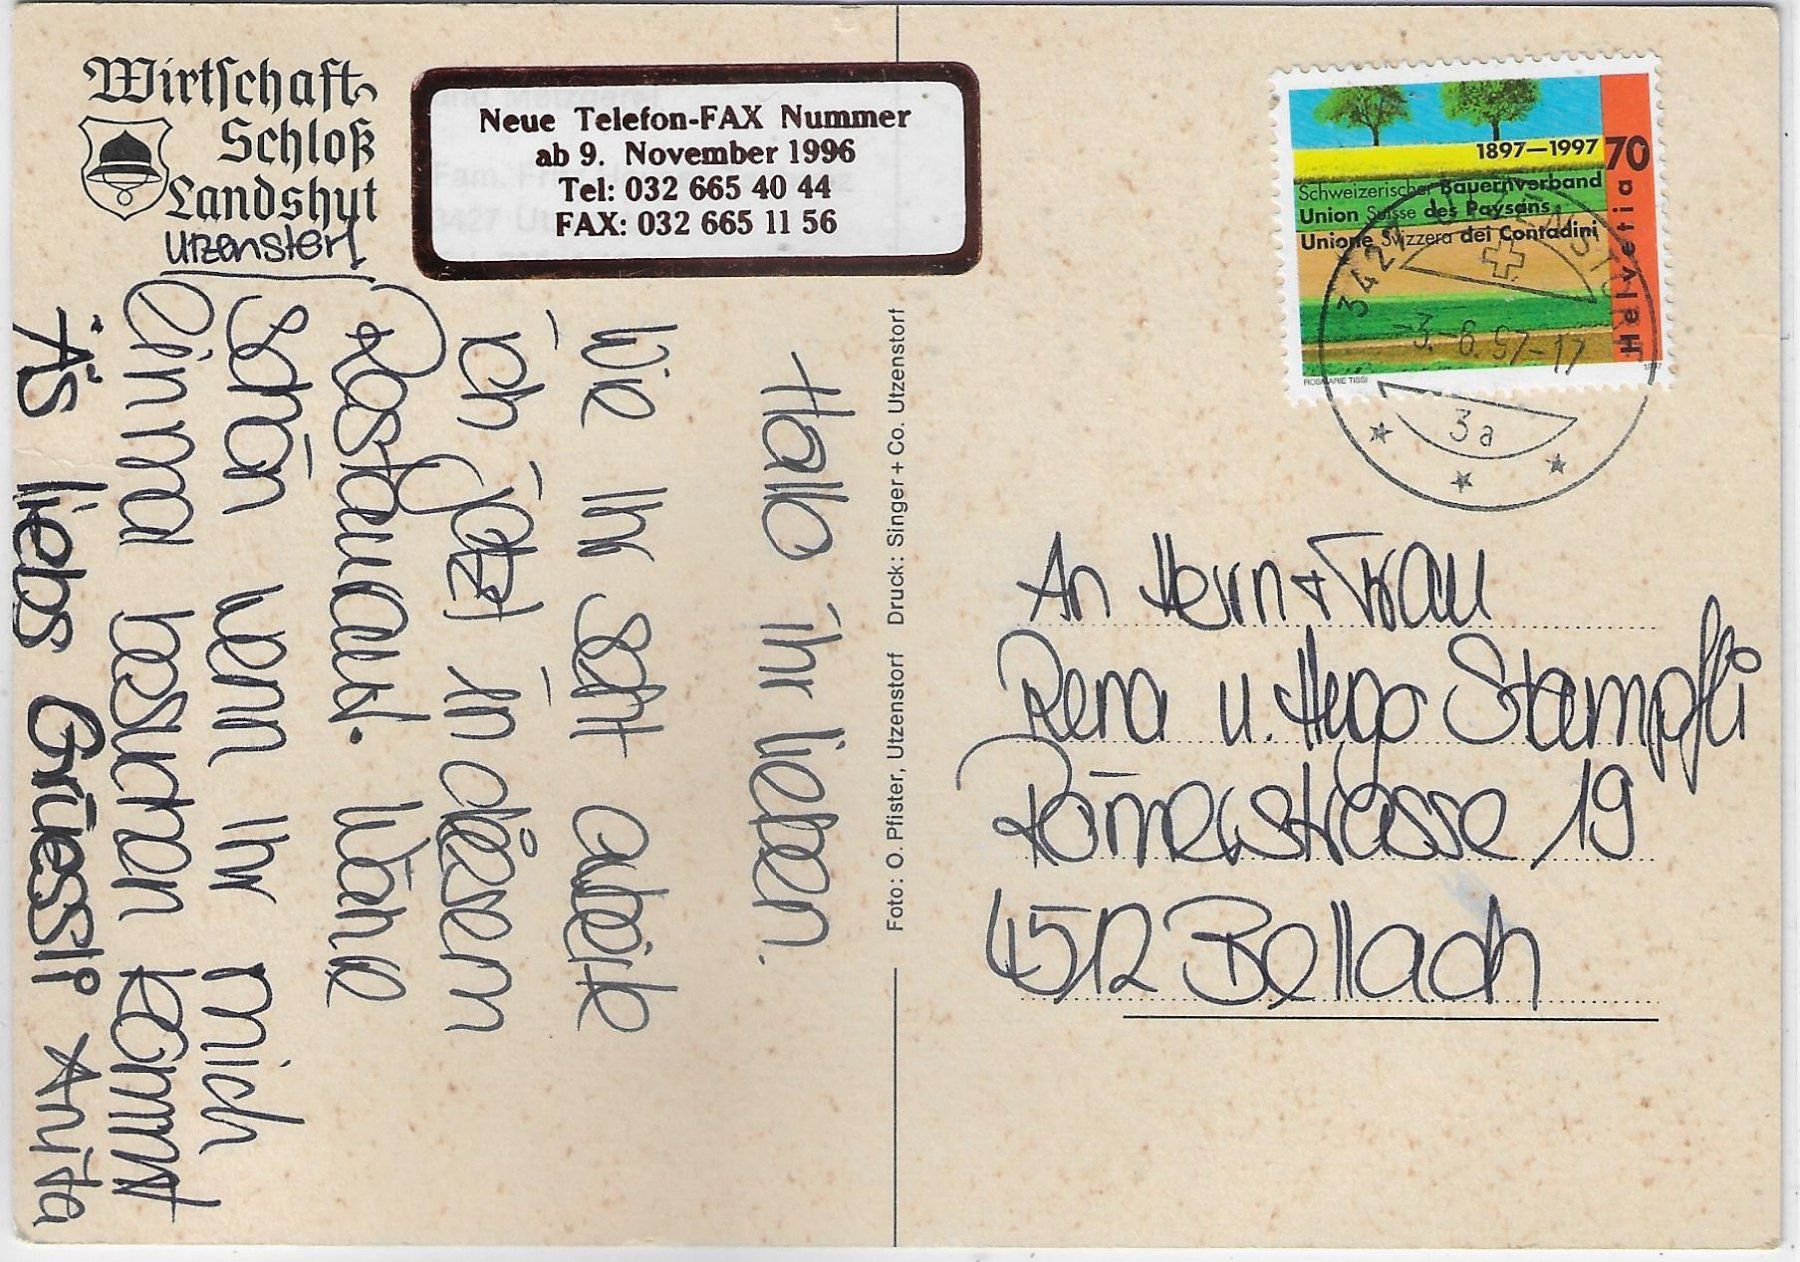 Wirtschaft
Schloß
Landshut
Utzenstorf
Neue Telefon-FAX Nummer
ab 9. November 1996
Tel: 032 665 40 44
FAX: 032 665 11 56
Hallo ihr lieben.
Wie Ihr seht arbeite
ich jetzt in diesem
Restaurant. Wäre
schön wenn Ihr mich
einmal besuchen kommt
Äs liebs Grüessli Anita
Foto: O. Pfister, Utzenstorf Druck: Singer + Co. Utzenstorf
1897–1997 70
Schweizerischer Bauernverband
Union Suisse des Paysans
Unione Svizzera dei Contadini
Helvetia
ROSMARIE TISSI 1997
342
-3.-6.97-17
3a
An Herrn + Frau
Rena u. Hugo Stampfli
Römerstrasse 19
4512 Bellach